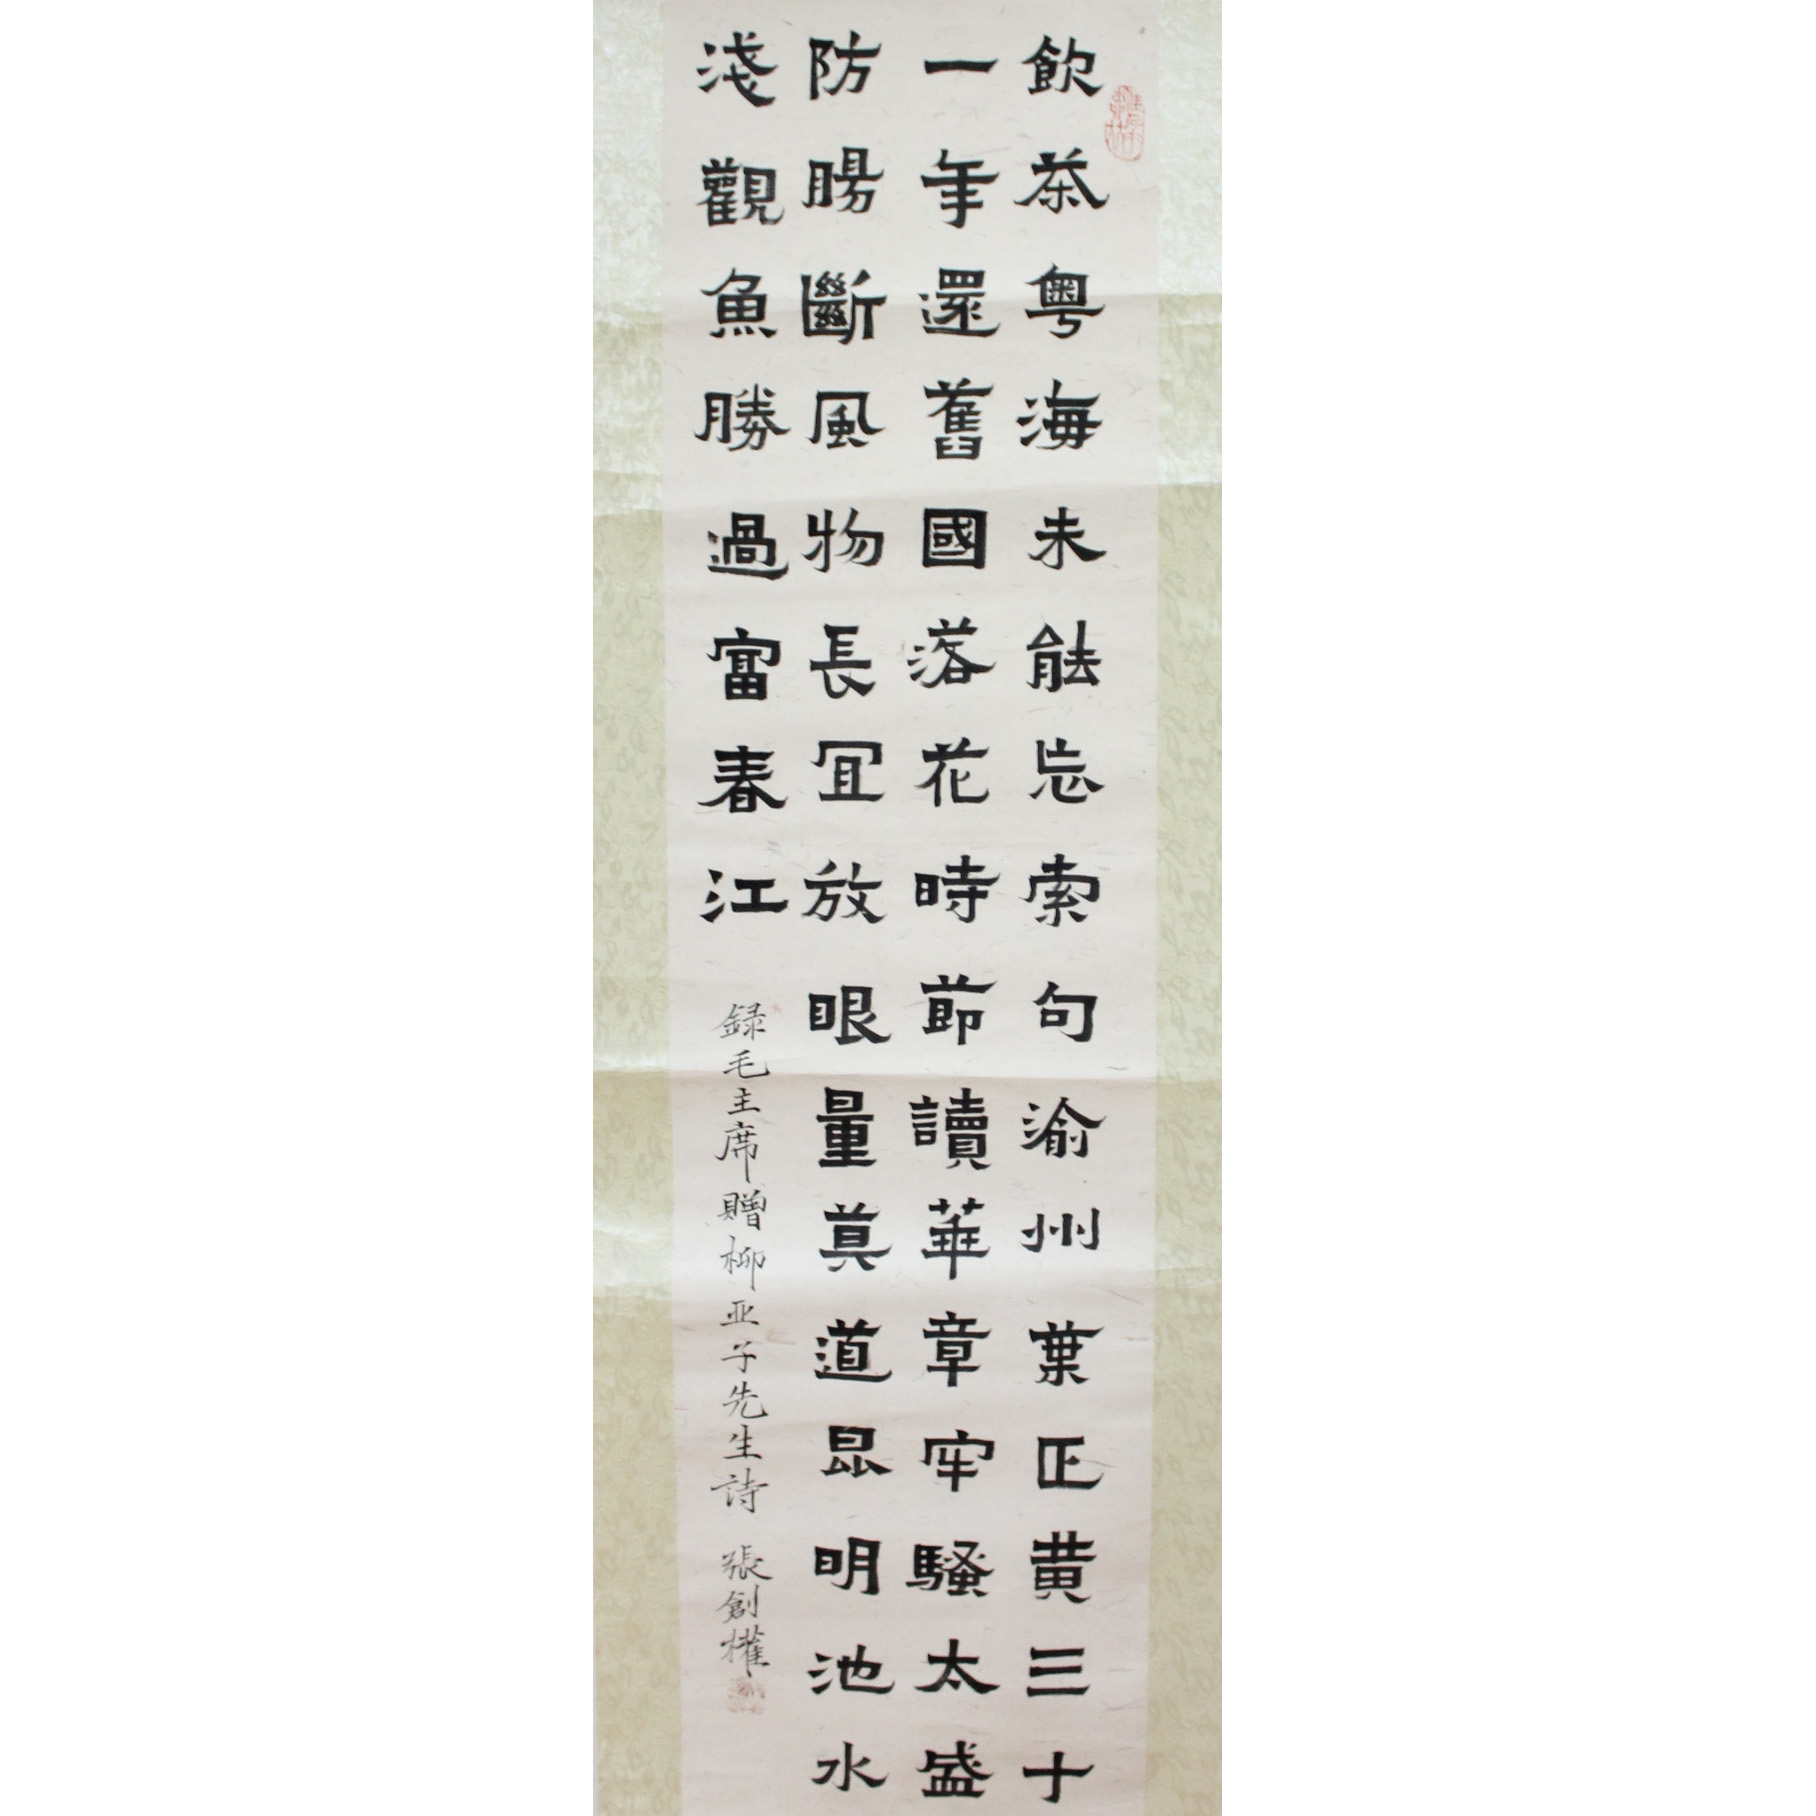 飲茶粤海未能忘索句渝州葉正黄三十
一年還舊國落花時節讀華章牢騷太盛
防腸斷風物長宜放眼量莫道昆明池水
淺觀魚勝過富春江
録毛主席贈柳亚子先生詩 張創權